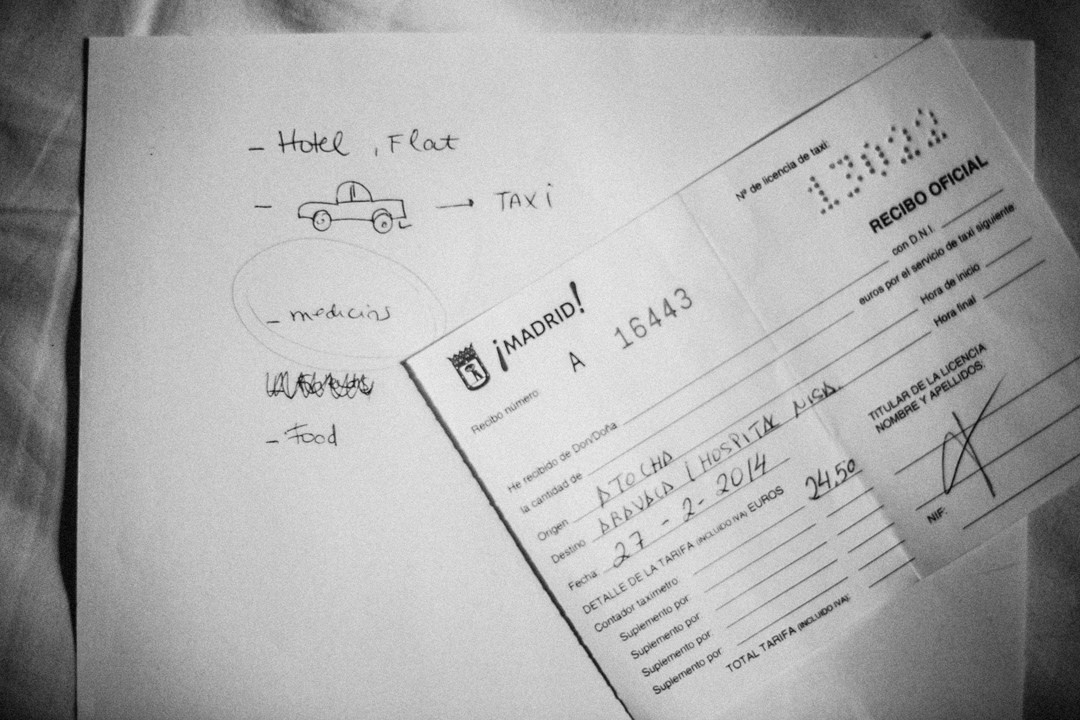 - Hotel , Flat
- → TAXi
- medicins
- Food
Nº de licencia de taxi:
13022
RECIBO OFICIAL
¡MADRID!
Recibo número:
A 16443
He recibido de Don/Doña
con D.N.I.
la cantidad de
euros por el servicio de taxi siguiente:
Origen ATOCHA
Hora de inicio
Destino ARAVACA / HOSPITAL NISA.
Hora final
Fecha: 27 - 2 - 2014
DETALLE DE LA TARIFA (INCLUIDO IVA) EUROS
Contador taxímetro: 24,50
Suplemento por
Suplemento por
Suplemento por
Suplemento por
TOTAL TARIFA (INCLUIDO IVA):
TITULAR DE LA LICENCIA
NOMBRE Y APELLIDOS:
NIF: